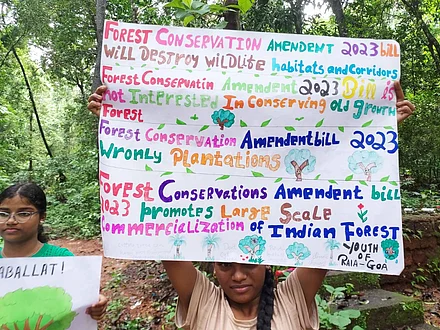 FOREST CONSERVATION AMENDENT 2023 bill
will DESTROY WiLDLife habitats and Corridors
Forest Conservatin Amendent 2023 Bill is
not Interested In Conserving old growth
Forest
Forest Conservation Amendent bill 2023
Wronly Plantations
Forest Conservations Amendent bill
2023 promotes Large Scale
Commercialization of Indian Forest
YOUTH
OF
RAIA-GOA
ABALLAT!